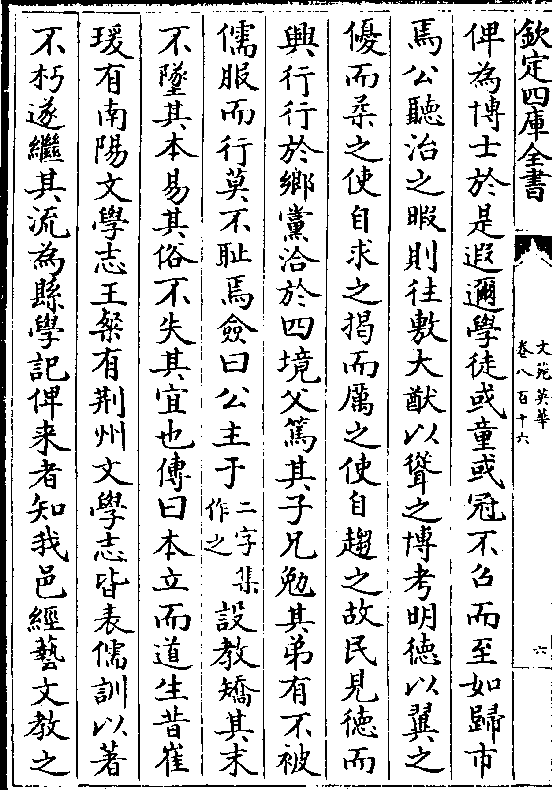 欽定四庫全書
文苑英華
卷八百十六
六
俾為博士於是遐邇學徒或童或冠不召而至如歸市
焉公聽治之暇則往敷大猷以聳之博考明德以翼之
優而柔之使自求之揭而厲之使自趨之故民見德而
興行行於鄉黨洽於四境父篤其子兄勉其弟有不被
儒服而行莫不耻焉僉曰公主于二字集作之設教矯其末
不墜其本易其俗不失其宜也傳曰本立而道生昔崔
瑗有南陽文學志王粲有荆州文學志皆表儒訓以著
不朽遂繼其流為縣學記俾来者知我邑經藝文教之